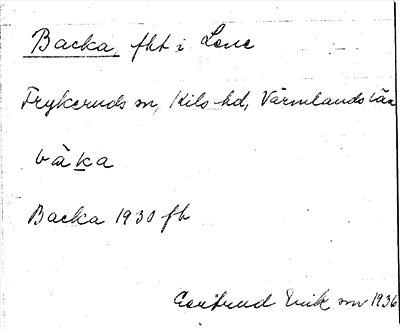 Backa, fht i Lene
Frykeruds sn, Kils hd, Värmlands län
bàka
Backa 1930 fb
Gertrud Erik sm 1936